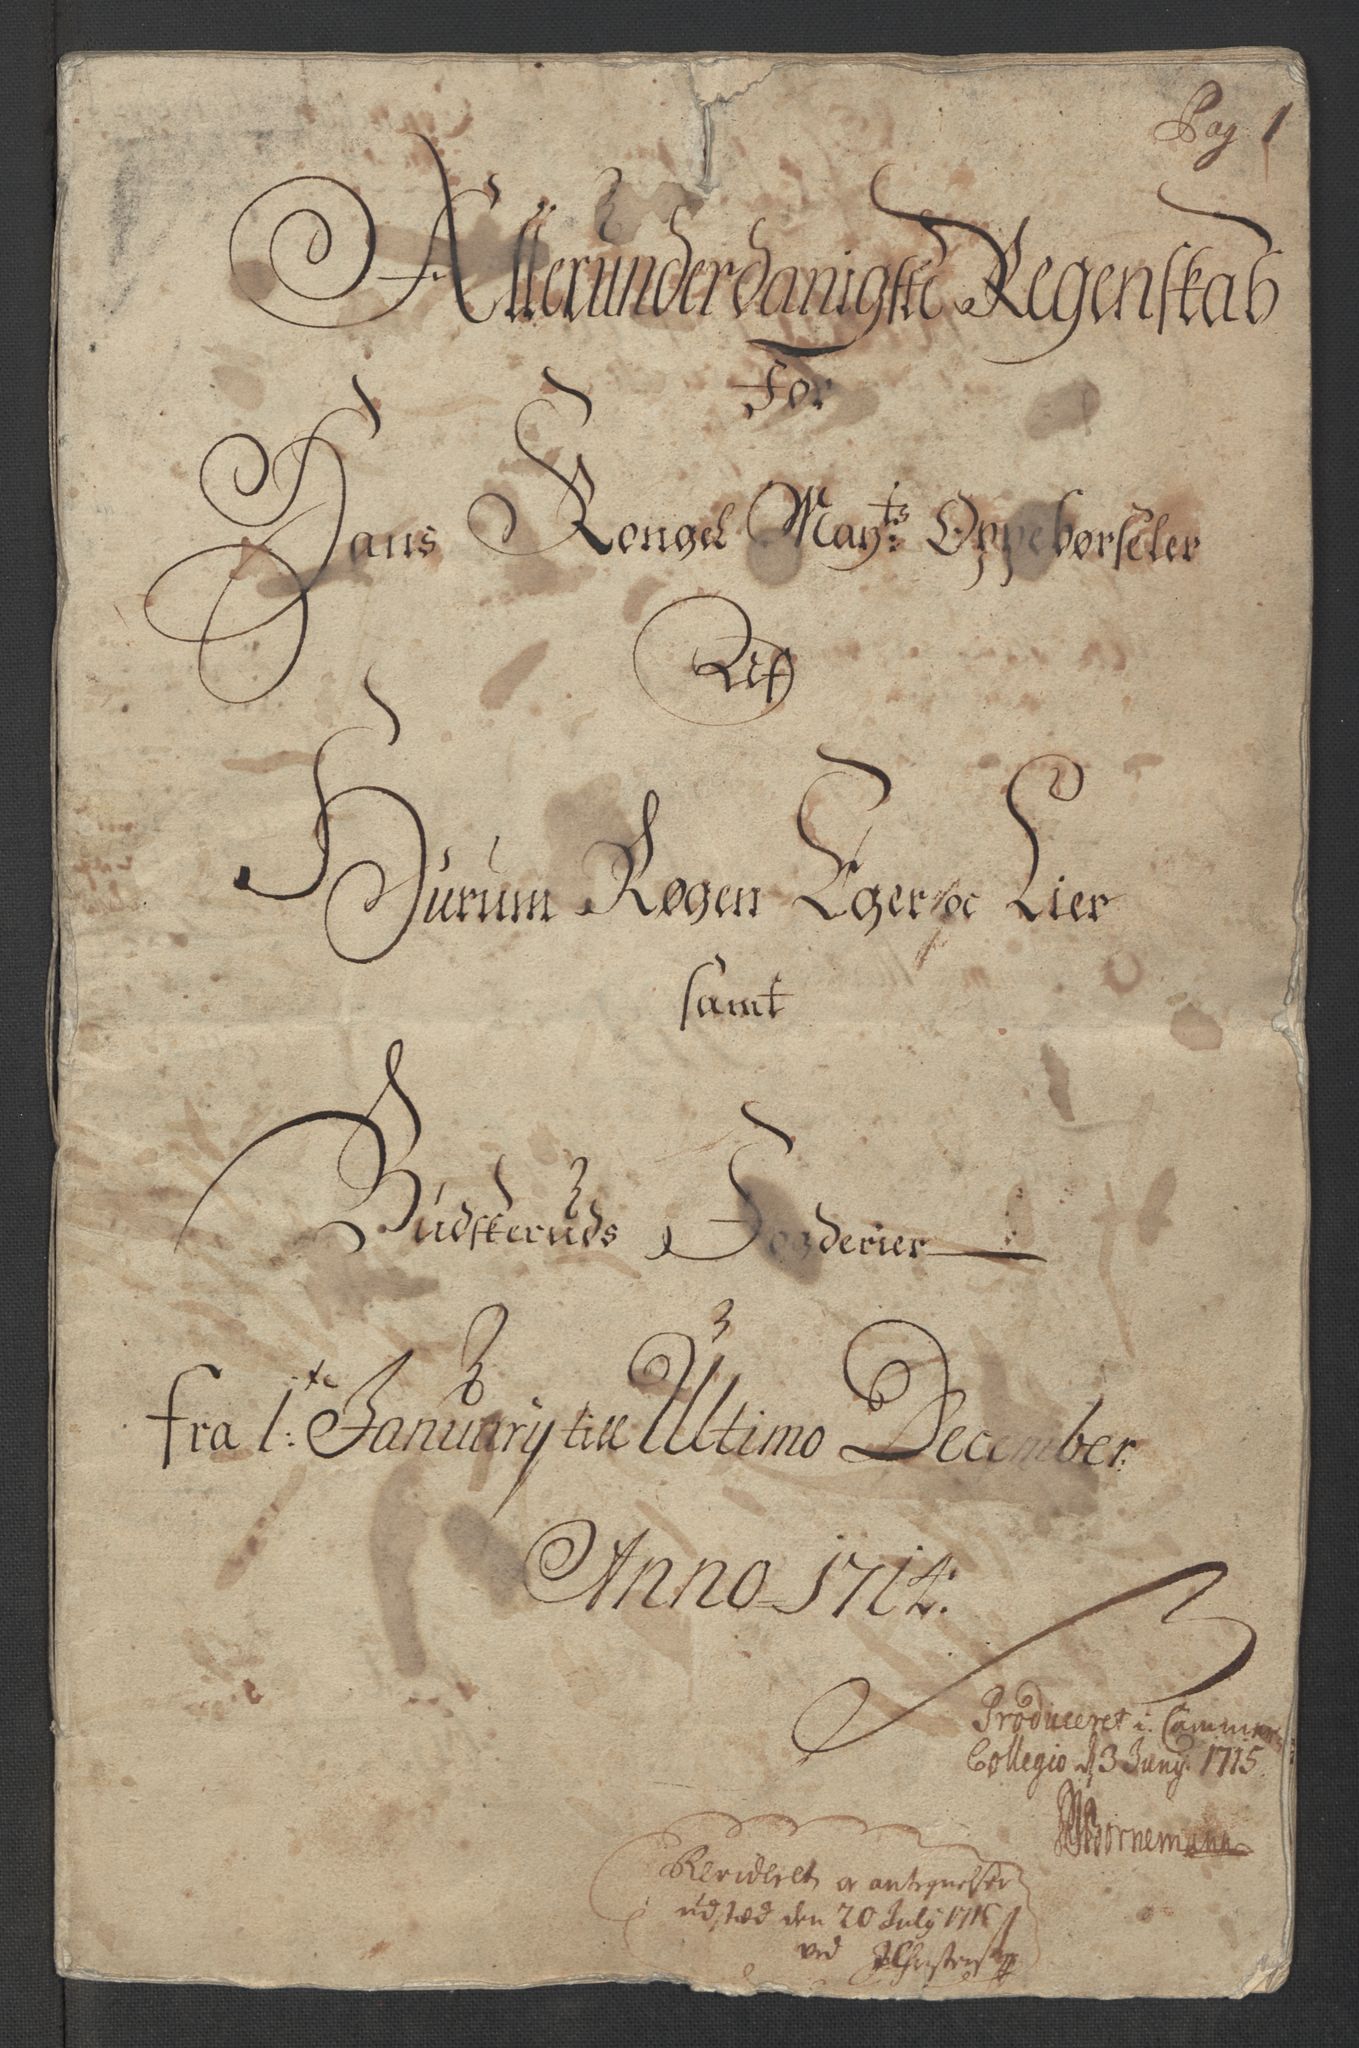 Pag 1
Allerunderdanigste Regenskab
For
Hans Kongel Mayts: Oppebørseler
Af
Hurum Røgen Eger oc Lier
samt
Budskeruds Fogderier
fra 1te: January till Ultimo December:
Anno 1714:
Produceret i Cammer
Collegio d 3 Juny 1715
Bornemann
Revideret og antegnelser
udstæd den 20 July 171
ved